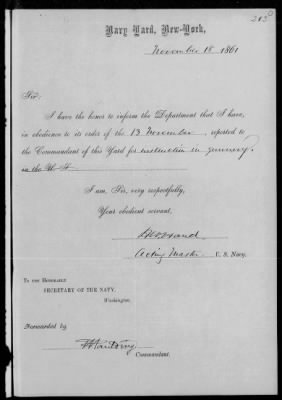 Navy Yard, New-York,
November 18 1861
Sir:
I have the honor to inform the Department that I have,
in obedience to its order of the 13 November, reported to
the Commandant of this Yard for instruction in gunnery
in the
I am, Sir, very respectfully,
Your obedient servant,
Acting Master U. S. Navy.
To the Honorable
SECRETARY OF THE NAVY,
Washington.
Forwarded by
Commandant.